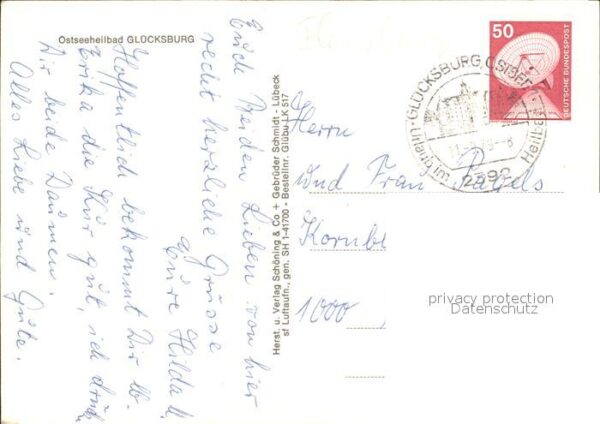 Ostseeheilbad GLÜCKSBURG
Euch Beiden Lieben von hier
recht herzliche Grüsse
Eure Hilda
Hoffentlich bekommt Dir lb.
Erika die Kur gut, ich drück
Dir beide Daumen.
Alles Liebe und Gute.
Herst. u. Verlag Schöning & Co + Gebrüder Schmidt - Lübeck
sf Luftaufn., gen. SH 1-41700 - Bestellnr. Glübu LK 517
50
DEUTSCHE BUNDESPOST
GLÜCKSBURG, OSTSEE
2392
Herrn
und Frau Pagels
Kornbe
1000
privacy protection
Datenschutz